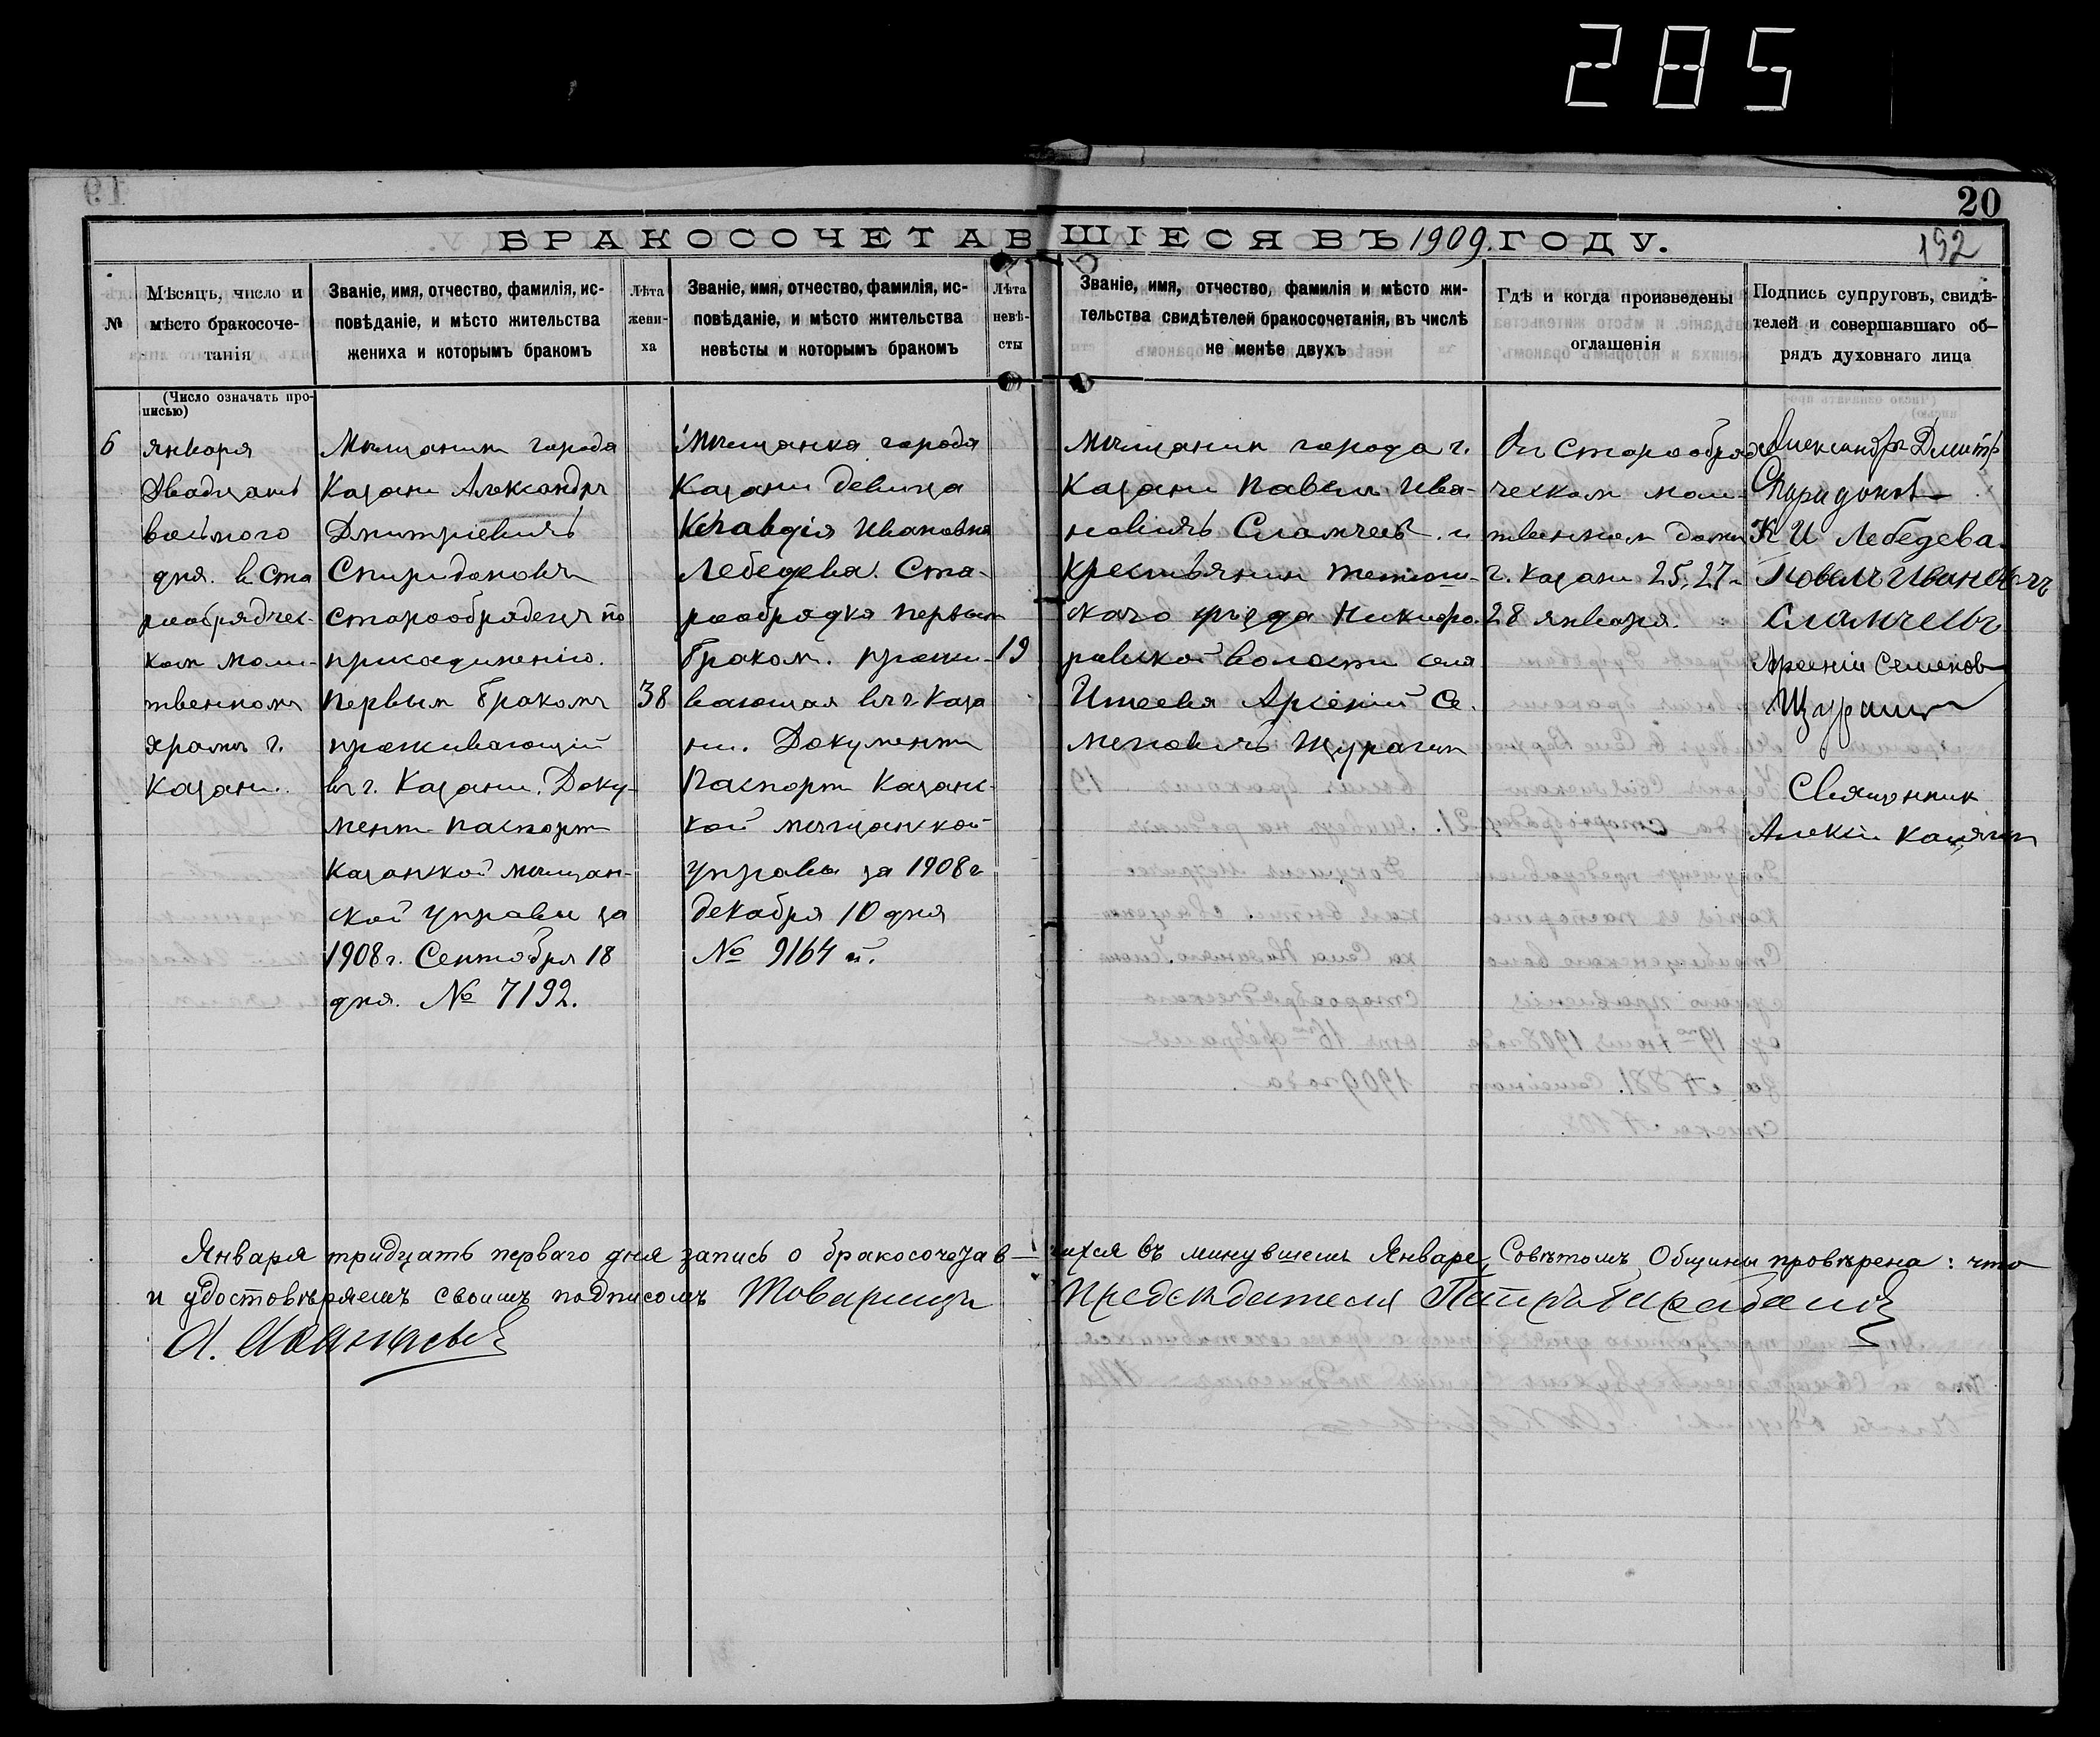 285
20
БРАКОСОЧЕТАВШІЕСЯ ВЪ 1909 ГОДУ.
192
№
Мѣсяцъ, число и
мѣсто бракосоче-
танія
Званіе, имя, отчество, фамилія, ис-
повѣданіе, и мѣсто жительства
жениха и которымъ бракомъ
Лѣта
жени-
ха
Званіе, имя, отчество, фамилія, ис-
повѣданіе, и мѣсто жительства
невѣсты и которымъ бракомъ
Лѣта
невѣ-
сты
Званіе, имя, отчество, фамилія и мѣсто жи-
тельства свидѣтелей бракосочетанія, въ числѣ
не менѣе двухъ
Гдѣ и когда произведены
оглашенія
Подпись супруговъ, свидѣ-
телей и совершавшаго об-
рядъ духовнаго лица
(Число означать про-
писью)
6
января
двадцать
восьмого
дня. в Ста
рообрядчес-
ком моли-
твенномъ
храмѣ г.
Казани.
Мѣщанин города
Казани Александръ
Дмитріевичъ
Спиридоновъ
старообрядецъ по
присоединенію.
первым бракомъ
проживающій
въ г. Казани. Доку-
мент паспорт
Казанской мѣщан-
ской управы за
1908 г. Сентября 18
дня. № 7192.
38
Мѣщанка города
Казани девица
Клавдія Ивановна
Лебедева. Ста-
рообрядка первым
браком. прожи-
вающая въ г. Каза
ни. Документ
Паспорт Казанс-
кой мѣщанской
управы за 1908 г
декабря 10 дня
№ 9164 й.
19
Мѣщанин города г.
Казани Павел Ива-
новичъ Сламчев. и
крестьянин тетюш-
скаго уѣзда Никифо-
ровской волости села
Ишеева Арсений Се-
менович Щурагин
Въ Старообряд
ческом моли-
твенном доме
г. Казани 25, 27 и
28 января.
Александръ Дмитр
Спиридонов
К И Лебедева.
Павелъ Ивановичъ
Сламчевъ
Арсеній Семенов
Священник
Алексій Калягин
Января тридцать перваго дня запись о бракосочетав-шихся въ минувшемъ Январе, Совѣтомъ Общины провѣрена: что
и удостовѣряемъ своимъ подписомъ Товарищъ Председателя